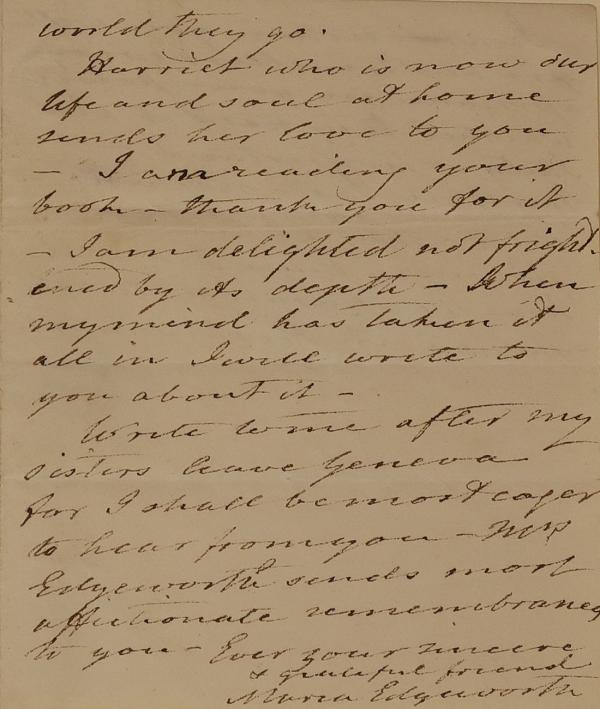 world they go.
Harriet who is now our
life and soul at home
sends her love to you
- I am reading your
book - thank you for it
- I am delighted not fright-
ened by its depth - When
my mind has taken it
all in I will write to
you about it -
Write to me after my
sisters leave Geneva
for I shall be most eager
to hear from you - Mrs
Edgeworth sends most
affectionate remembrances
to you - Ever your sincere
& grateful friend
Maria Edgeworth